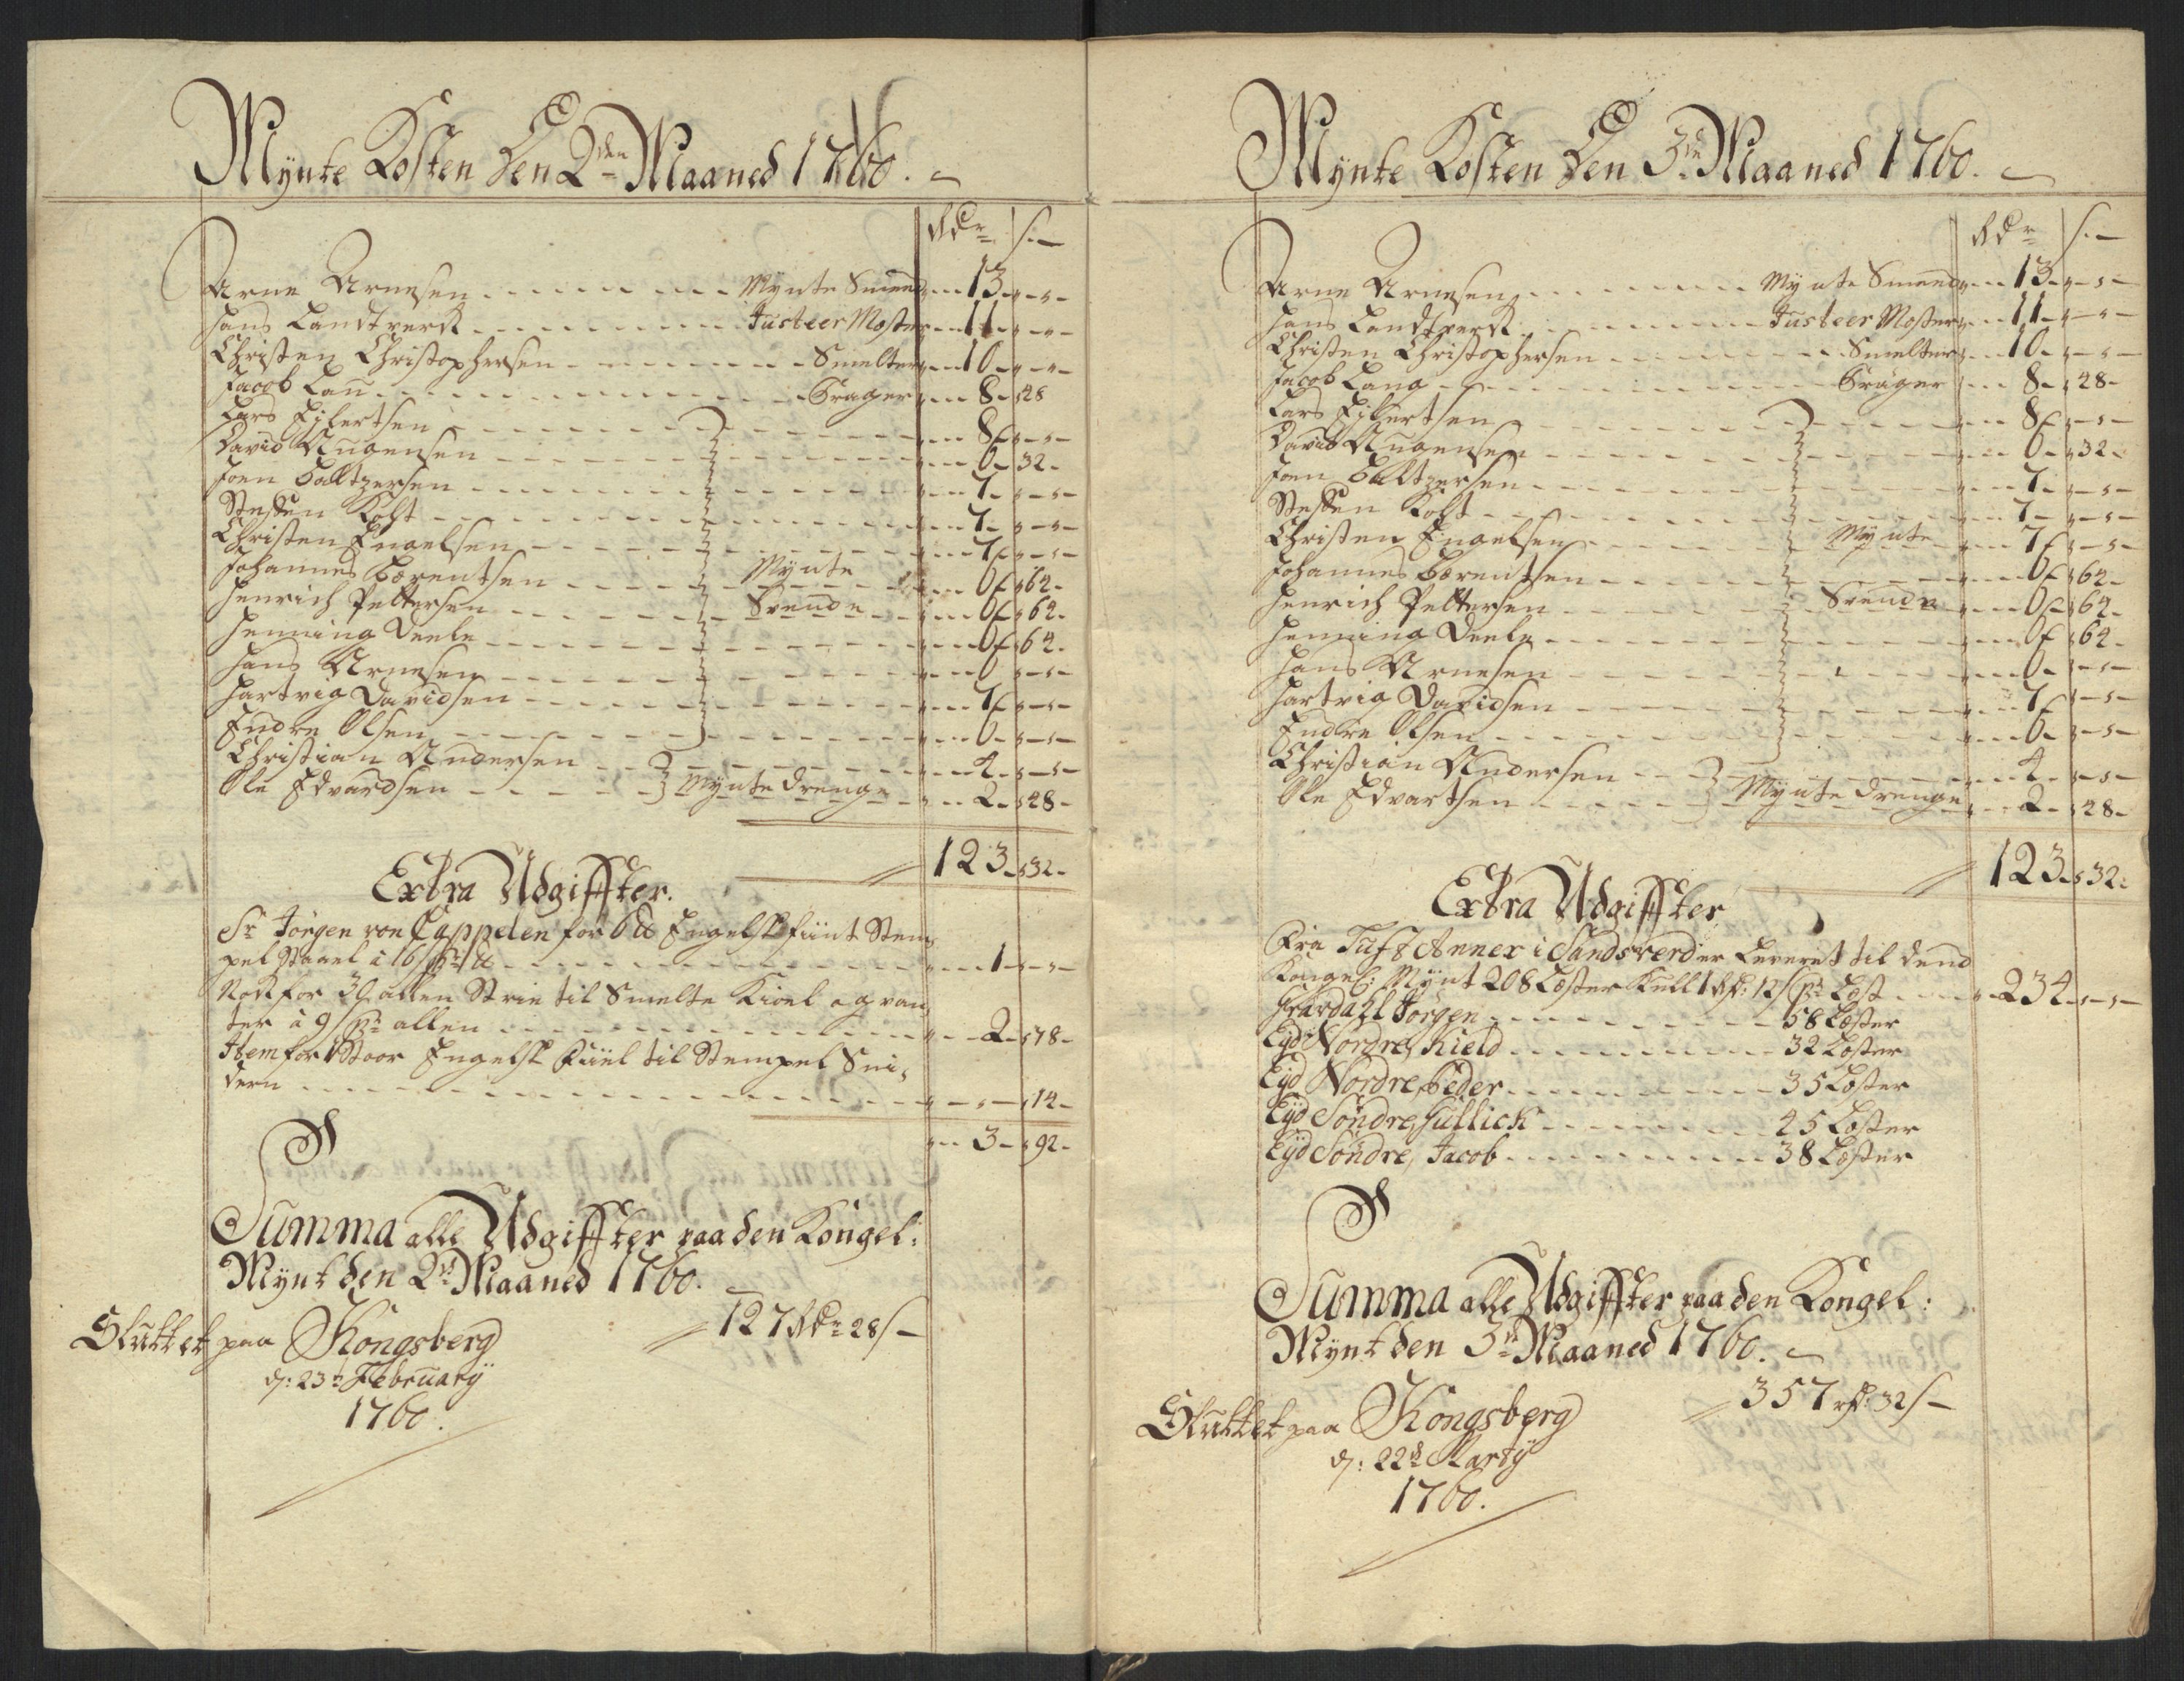 Mynte Kosten Den 2den Maaned 1760.
Rdr s.
Arne Arnesen Mynte Smeed 13
Hans Landtverk Justeer Mester 11
Christen Christophersen Smelter 10
Jacob Lau Præger 8 48
Lars Eilertsen 8
David Mogensen 6 32
Joen Baltzersen 7
Steffen Kolst 7
Christen Engelsen 7
Johannes Bærentsen Mynte 6 64
Henrich Peltersen Svende 6 64
Henning Deele 6 64
Hans Arnesen 6
Hartvig Davidsen 7
Endre Olsen 6
Christian Andersen 4
Ole Edvardsen Mynte Drenge 2 48
123 32
Extra Udgiffter.
Sr Jörgen von Cappelen for 6 ℔ Engelsk fiint Stem
pel Staael à 16 s pr ℔ 1
Nock for 30 allen Strie til Smelte Kiöel og van
ter à 9 s pr allen 2 78
Item for 1 Stoor Engelsk Fiil til Stempel Sni
deren 14
3 92
Summa alle Udgiffter paa den Kongel:
Mynt den 2den Maaned 1760.
127 Rdr 28 s
Sluttet paa Kongsberg
d: 23de February
1760.
Mynte Kosten Den 3die Maaned 1760.
Rdr s.
Arne Arnesen Mynte Smeed 13
Hans Landtverk Justeer Mester 11
Christen Christophersen Smelter 10
Jacob Lang Præger 8 48
Lars Eilertsen 8
David Mogensen 6 32
Joen Baltzersen 7
Steffen Kolst 7
Christen Engelsen Mynte 7
Johannes Bærentsen 6 64
Henrich Peltersen Svende 6 64
Henning Deele 6 64
Hans Arnesen 6
Hartvig Davidsen 7
Endre Olsen 6
Christian Andersen 4
Ole Edvartsen Mynte Drenge 2 48
123 32
Extra Udgiffter
Fra Tuft Annex i Sandsverd er Leveret til dend
Kongel: Mynt 208 Lester Kull 1 Rdr: 12 s pr Lest 234
Jörgen 58 Lester
Eyd Nordre, Kield 32 Lester
Eyd Nordre, Peder 35 Lester
Eyd Söndre, Gullich 45 Lester
Eyd Söndre, Jacob 38 Lester
Summa alle Udgiffter paa den Kongel:
Mynt den 3die Maaned 1760.
357 rdr: 32 s
Sluttet paa Kongsberg
d: 22de Marty
1760.